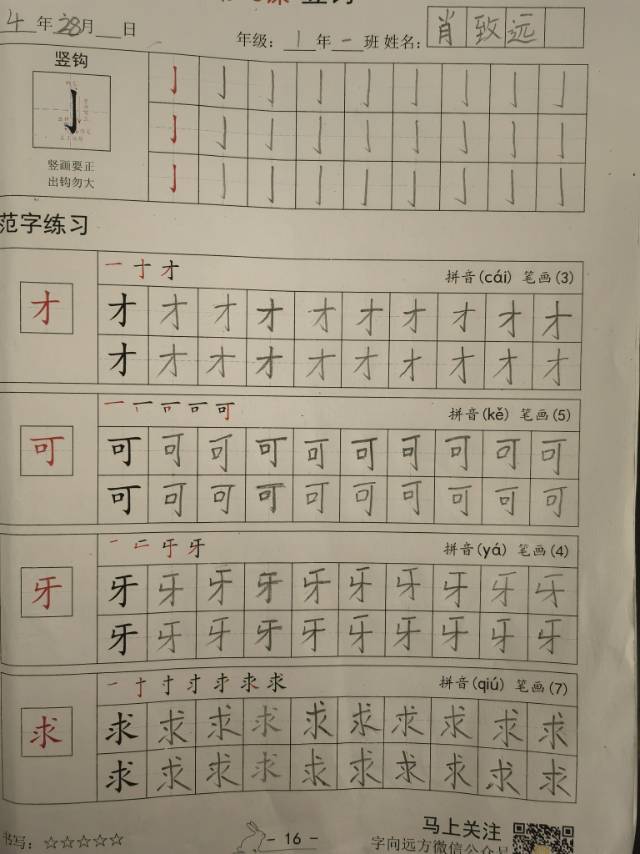 4年28月 日
年级: 1 年 一 班 姓名: 肖致远
竖钩
亅 亅 亅 亅 亅 亅 亅 亅 亅
亅 亅 亅 亅 亅 亅 亅 亅 亅
亅 亅 亅 亅 亅 亅 亅 亅 亅
竖画要正
出钩勿大
范字练习
一 十 才 拼音(cái) 笔画(3)
才 才 才 才 才 才 才 才 才 才 才
才 才 才 才 才 才 才 才 才 才
拼音(kě) 笔画(5)
可 可 可 可 可 可 可 可 可 可 可
可 可 可 可 可 可 可 可 可 可
拼音(yá) 笔画(4)
牙 牙 牙 牙 牙 牙 牙 牙 牙 牙 牙
牙 牙 牙 牙 牙 牙 牙 牙 牙 牙
拼音(qiú) 笔画(7)
求 求 求 求 求 求 求 求 求 求 求
求 求 求 求 求 求 求 求 求 求
书写: ☆☆☆☆☆
- 16 -
马上关注
字向远方微信公众号